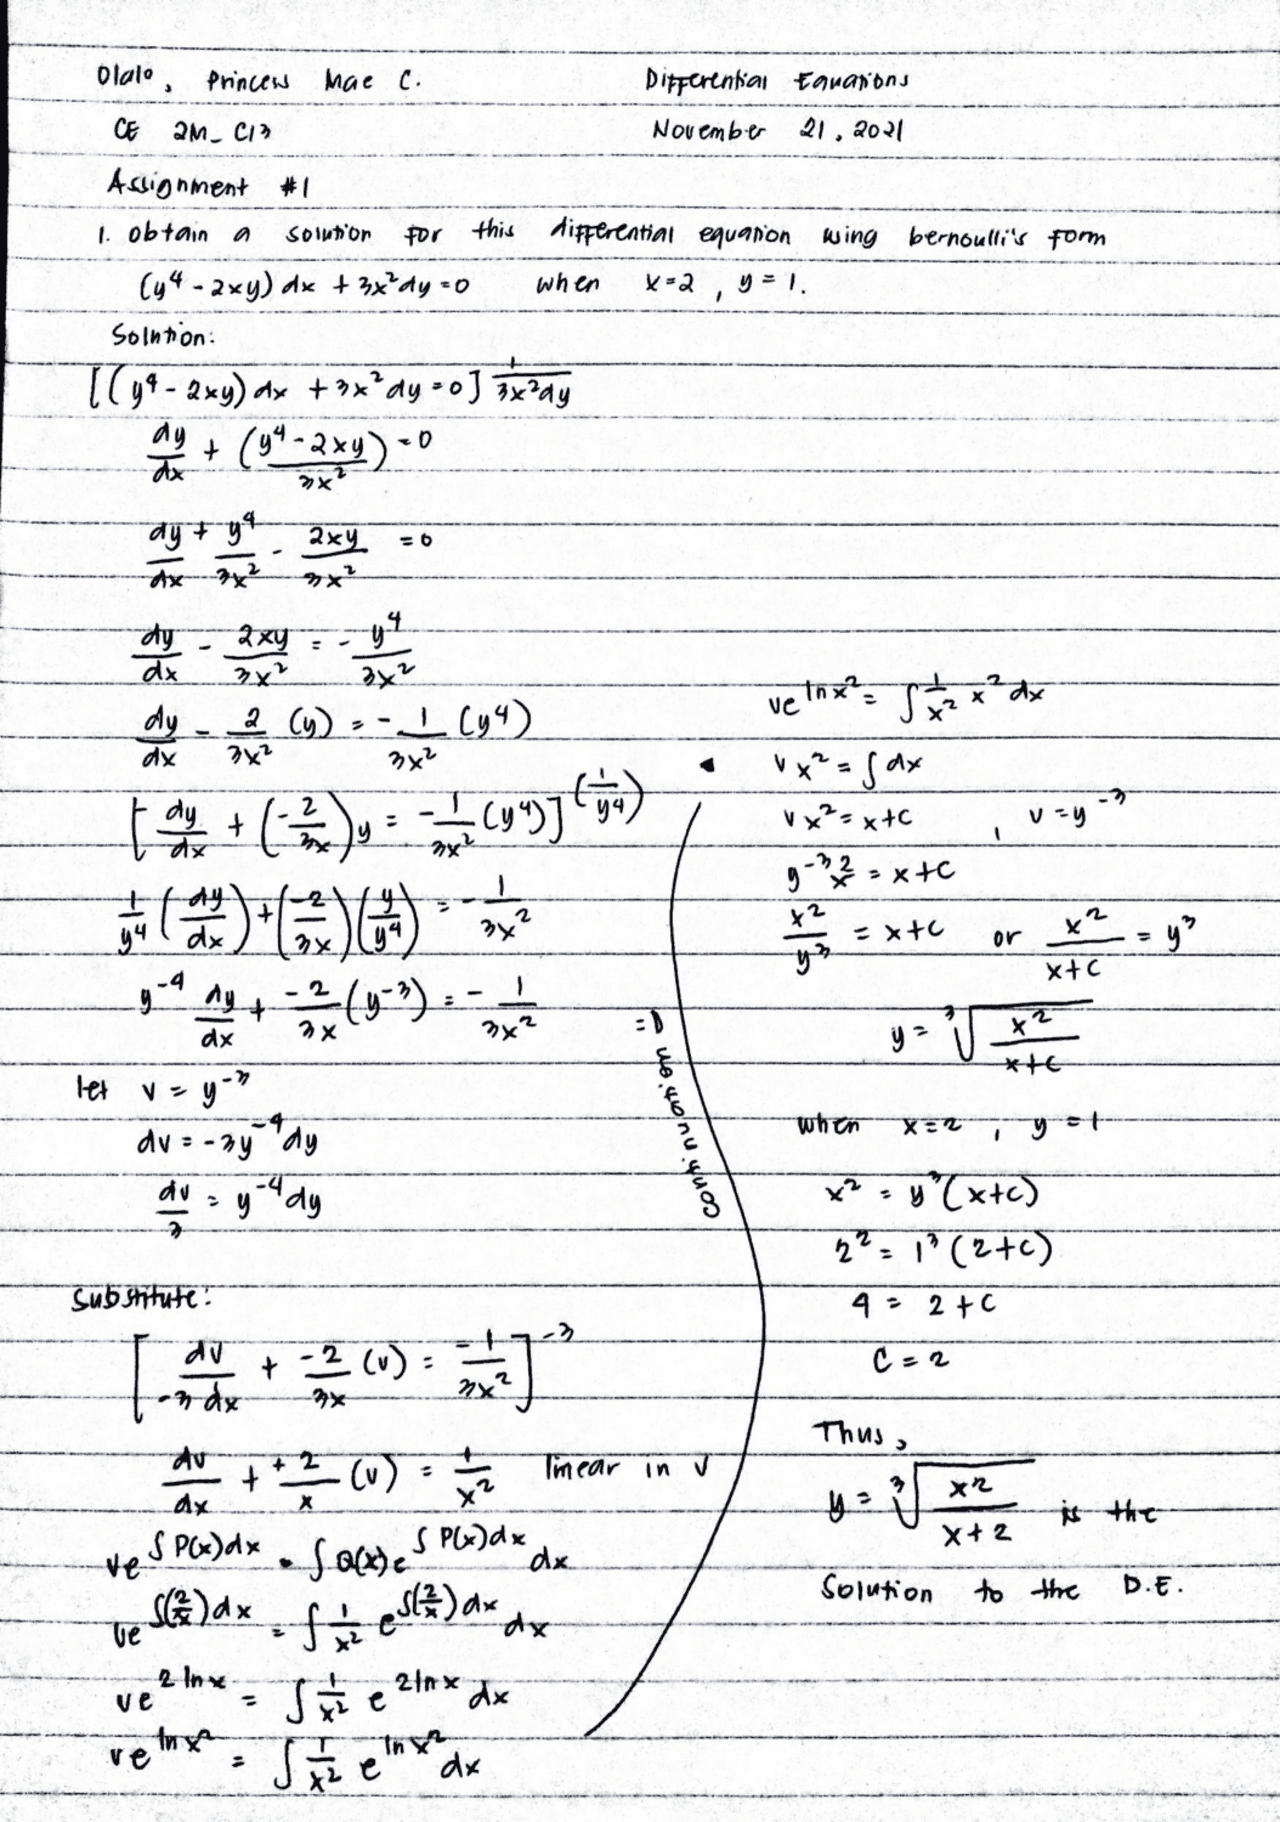 Olalo, Princess Mae C. Differential Equations
CE 2M_C13 November 21, 2021
Assignment #1
1. Obtain a solution for this differential equation using bernoulli's form
(y⁴ - 2xy) dx + 3x² dy = 0 when x = 2, y = 1.
Solution:
[(y⁴ - 2xy) dx + 3x² dy = 0] 1/(3x²dy)
dy/dx + (y⁴ - 2xy)/(3x²) = 0
dy/dx + y⁴/3x² - 2xy/3x² = 0
dy/dx - 2xy/3x² = - y⁴/3x²
dy/dx - 2/3x² (y) = - 1/3x² (y⁴)
[dy/dx + (-2/3x) y = -1/3x² (y⁴)] (1/y⁴)
1/y⁴ (dy/dx) + (-2/3x)(y/y⁴) = - 1/3x²
y⁻⁴ dy/dx + -2/3x (y⁻³) = - 1/3x²
let v = y⁻³
dv = -3y⁻⁴ dy
dv/3 = y⁻⁴ dy
Substitute:
[dv/-3 dx + -2/3x (v) = -1/3x²] -3
dv/dx + +2/x (v) = 1/x² linear in v
ve^∫P(x)dx = ∫Q(x)e^∫P(x)dx dx
ve^∫(2/x)dx = ∫ 1/x² e^∫(2/x)dx dx
ve^2 ln x = ∫ 1/x² e^2 ln x dx
ve^ln x² = ∫ 1/x² e^ln x² dx
Continuation =D
ve^ln x² = ∫ 1/x² x² dx
vx² = ∫dx
vx² = x+C , v = y⁻³
y⁻³x² = x+C
x²/y³ = x+C or x²/(x+C) = y³
y = ³√(x²/(x+C))
when x=2, y=1
x² = y³(x+C)
2² = 1³(2+C)
4 = 2+C
C = 2
Thus,
y = ³√(x²/(x+2)) is the
Solution to the D.E.